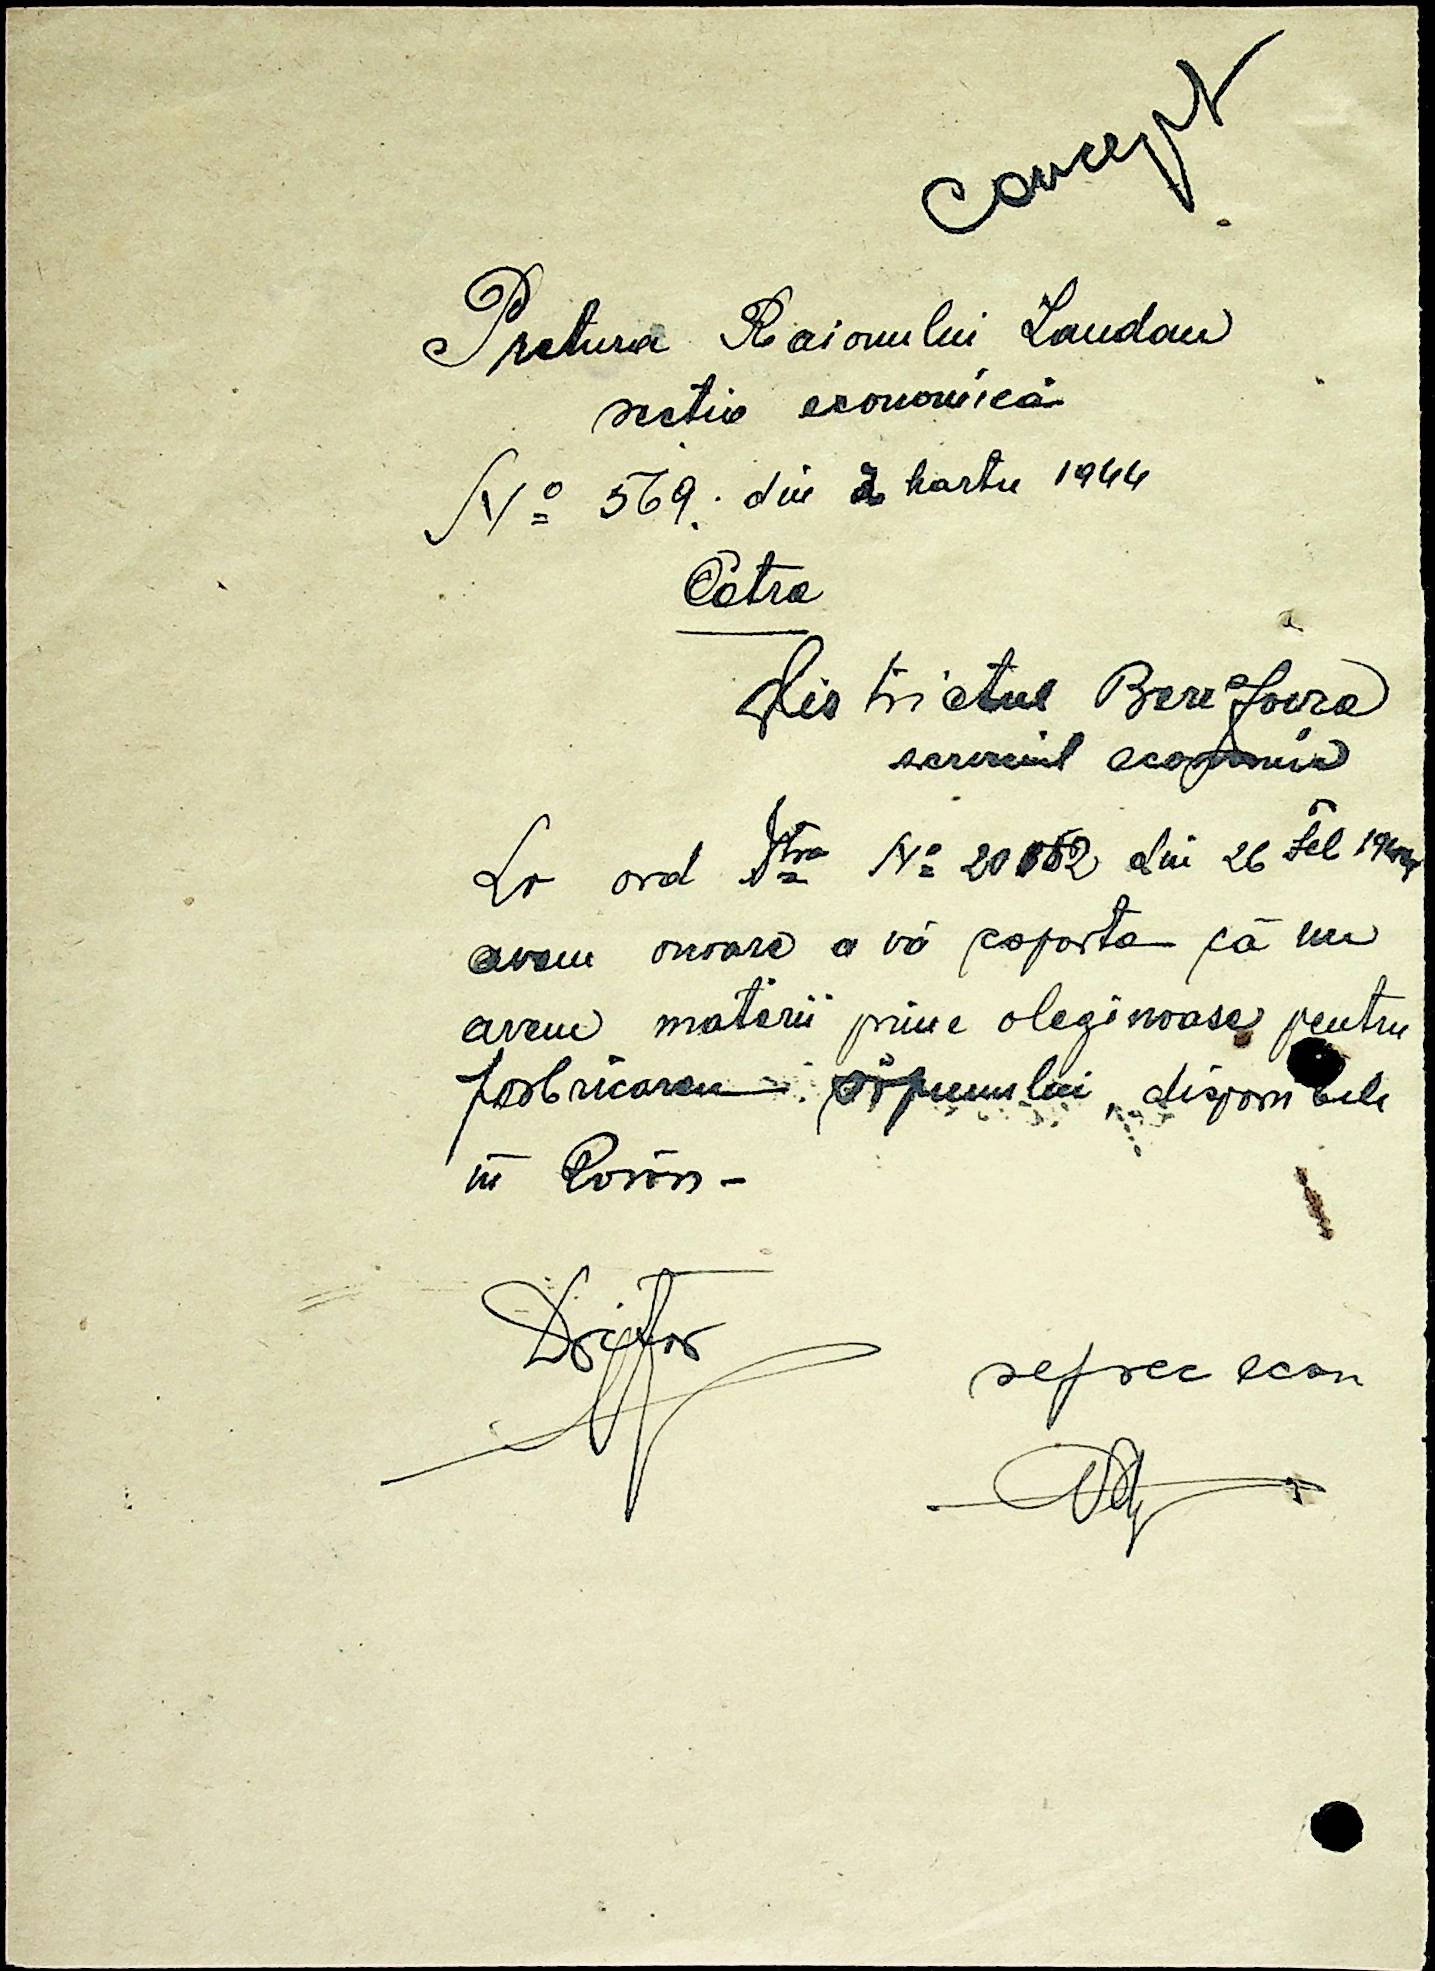 Concept
Pretura Raionului Landau
sectia economică
Nº 569. din 2 Martie 1944
Catre
Districtul Berezovca
serviciul economic
La ord Dtră Nº 20 din 26 Feb 1944
avem onoare a vă raporta că nu
avem materii prime oleginoase pentru
fabricarea săpunului, disponibile
in Raion -
Pretor
sef sec econ